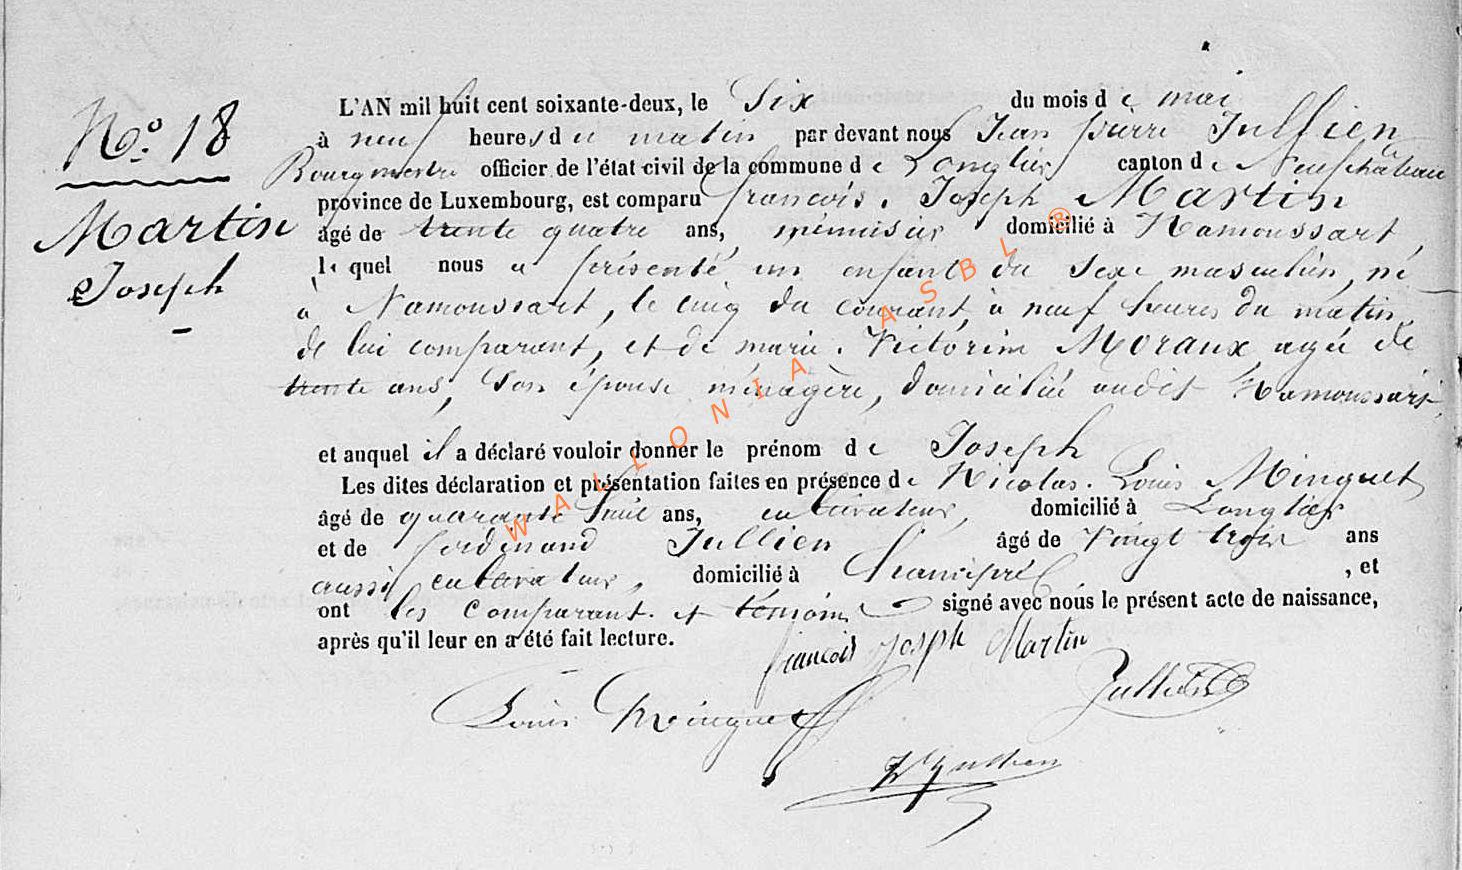 N.° 18
Martin
Joseph
L'AN mil huit cent soixante-deux, le Six du mois de mai
à neuf heures du matin par devant nous Jean pierre Jullien
Bourgmestre officier de l'état civil de la commune de Longlier canton de Neufchâteau
province de Luxembourg, est comparu francois. Joseph Martin
âgé de trente quatre ans, menuisier domicilié à Namoussart,
lequel nous a présenté un enfant du sexe masculin, né
à Namoussart, le cinq du courant, à neuf heures du matin,
de lui comparant, et de marie. Victorine Moraux agée de
trente ans, Son épouse ménagère, domiciliée audit Namoussart,
et auquel il a déclaré vouloir donner le prénom de Joseph
Les dites déclaration et présentation faites en présence de Nicolas. Louis Minguet
âgé de quarante huit ans, cultivateur, domicilié à Longlier
et de ferdinand Jullien âgé de Vingt trois ans
aussi cultivateur, domicilié à , et
ont les comparant. et témoins signé avec nous le présent acte de naissance,
après qu'il leur en a été fait lecture.
francois Joseph Martin
Jullien
Louis Minguet
Jullien
WALLONIA ASBL ®